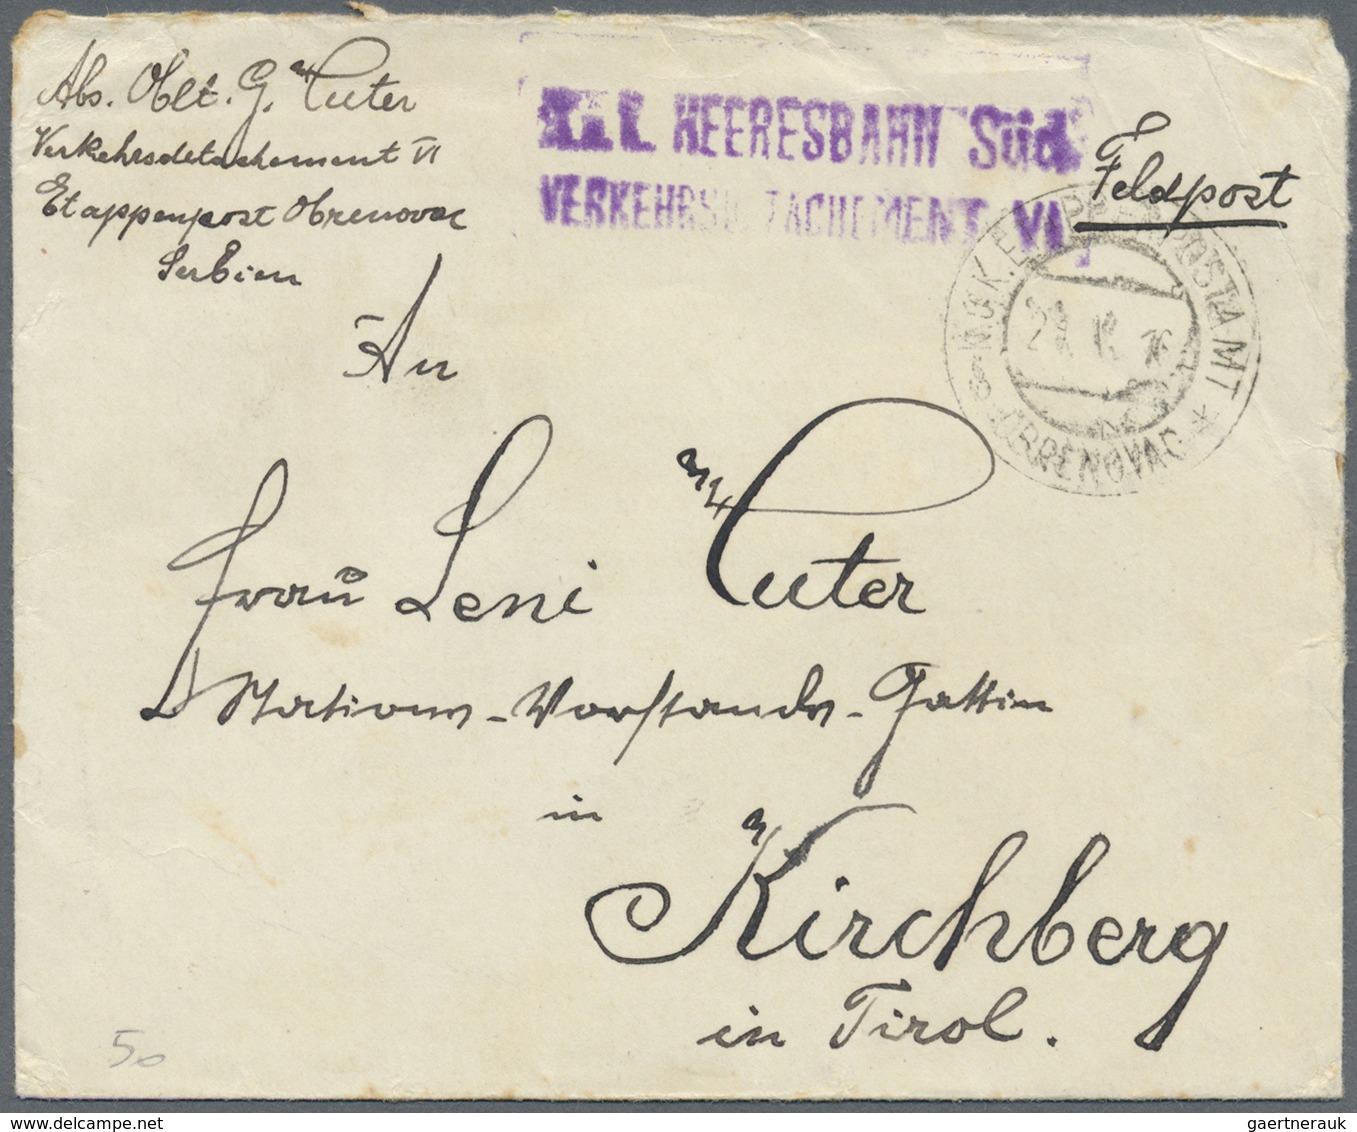 Abs. Oblt. G. Cuter
Verkehrsdetachement VI
Etappenpost Obrenovac
Serbien
K.u.K. HEERESBAHN Süd
VERKEHRSDETACHEMENT VI
Feldpost
K.u.K. ETAPPENPOSTAMT
OBRENOVAC
An
Frau Leni Cuter
Stations-Vorstands-Gattin
in
Kirchberg
in Tirol.
50
delcampe.net
gaertnerauk